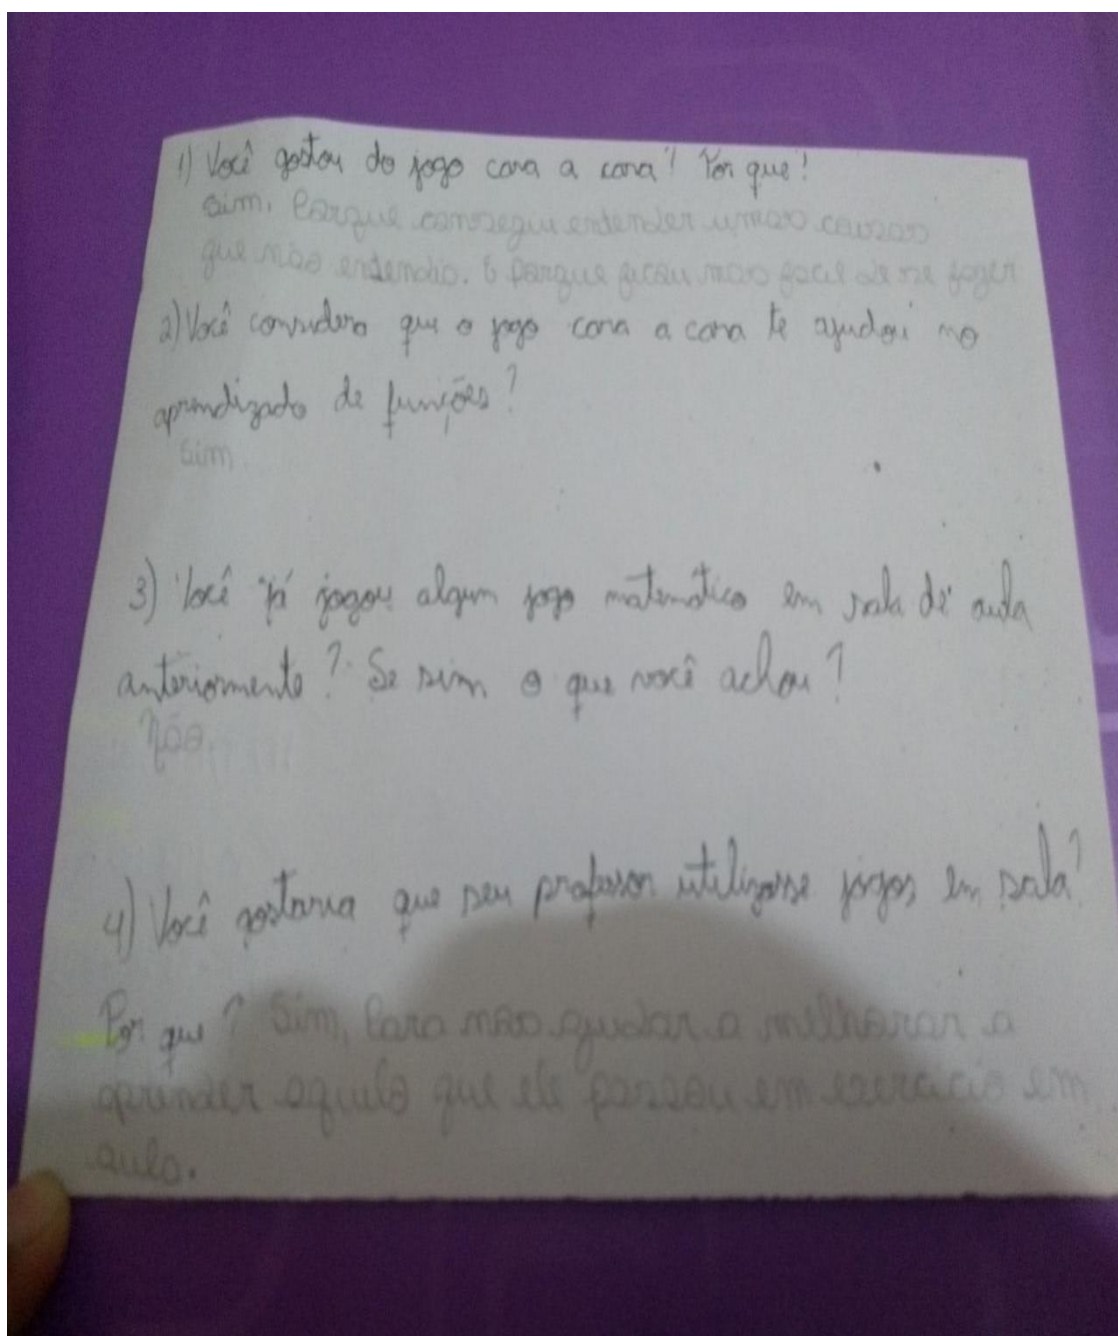 1) Você gostou do jogo cara a cara? Por que?
Sim. Porque consegui entender umas coisas
que não entendia. E porque ficou mas facil de se fazer
2) Você considera que o jogo cara a cara te ajudou no
aprendizado de funções?
Sim
3) Você já jogou algum jogo matemático em sala de aula
anteriormente? Se sim o que você achou?
Não.
4) Você gostaria que seu professor utilizasse jogos em sala?
Por que? Sim, Para nos ajudar a melhorar a
aprender aquilo que ele passou em exercicio em
aula.